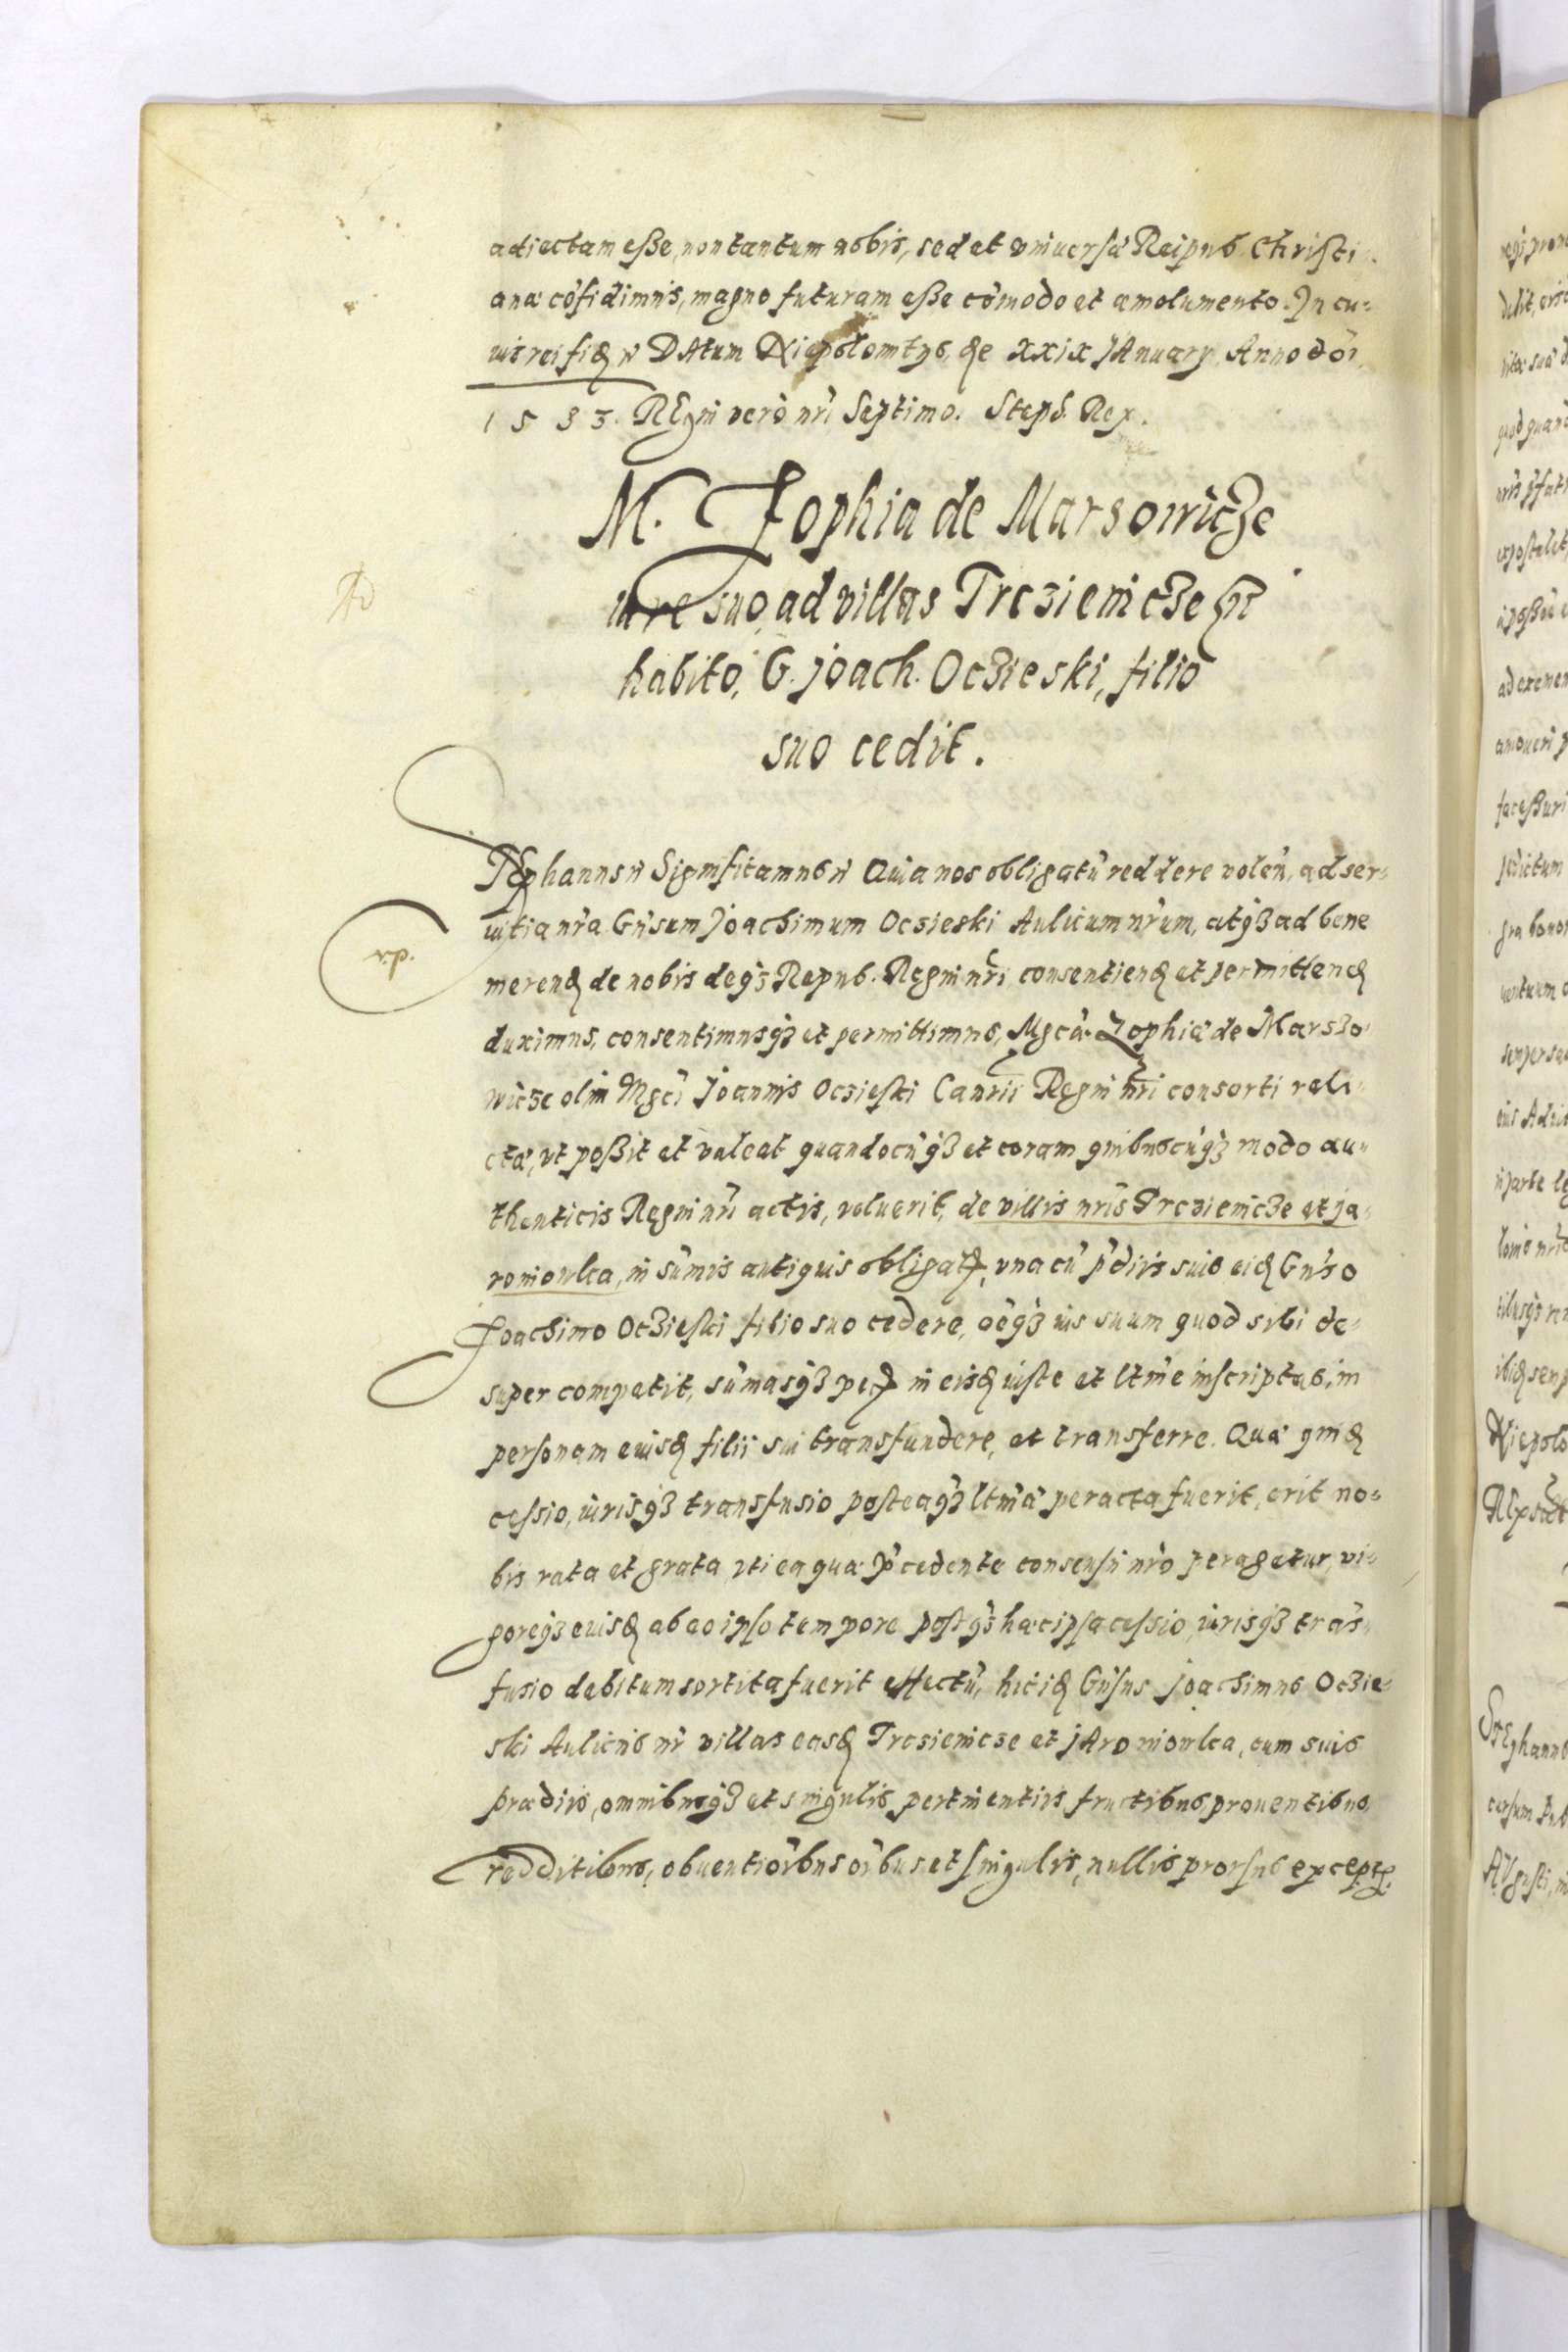 adiectam esse, non tantum nobis, sed et vniuersæ Reipub. Christi-
anæ cōfidimus, magno futuram esse cōmodo et emolumento. In cu-
ius rei fidē etc Datum Niepolomtys, die XXIX January Anno dōi
1583. Regni verò nrī Septimo. Steph. Rex.
M. Zophia de Marsowicze
iure suo, ad villas Trczienicze etc
habito, G. Joach. Oczieski, filio
suo cedit.
STephanus etc Significamus etc Quia nos obligatū reddere volen, ad ser-
uitia nrā Gnsum Joachimum Oczieski Aulicum nrum, atq3 ad bene
r.p.
merend de nobis deq3 Repub. Regni nrī consentiend et permittend
duximus, consentimusq3 et permittimus, Mgcæ Zophiæ de Marszo-
wicze olim Mgci Joannis Oczieski Canrii Regni nrī consorti reli-
ctæ, vt possit et valeat quandocūq3 et coram quibuscūq3 modo au-
thenticis Regni nrī actis, voluerit, de villis nris Trczienicze et Ja-
roniowka, in sūmis antiquis obligatis, vna cū pdiis suis eid Gnso
Joachimo Oczieski filio suo cedere, oēq3 ius suum quod sibi de-
super competit, sūmasq3 pec in eisd iuste et ltme inscriptas, in
personam eiusd filii sui transfundere, et transferre. Quæ quid
cessio, iurisq3 transfusio posteaq3 ltmæ peracta fuerit, erit no-
bis rata et grata vti ea quæ pcedente consensu nro peragetur, vi-
goreq3 eiusd ab eo ipso tempore postq3 hæc ipsa cessio, iurisq3 trās-
fusio debitum sortita fuerit effectū, hic id Gnsus Joachimus Oczie-
ski Aulicus nr villas easd Trczienicze et Jaroniowka, cum suis
prædiis, omnibusq3 et singulis pertinentiis fructibus, prouentibus,
redditibus, obuentiōibus oībus et singulis, nullis prorsus exceptis.